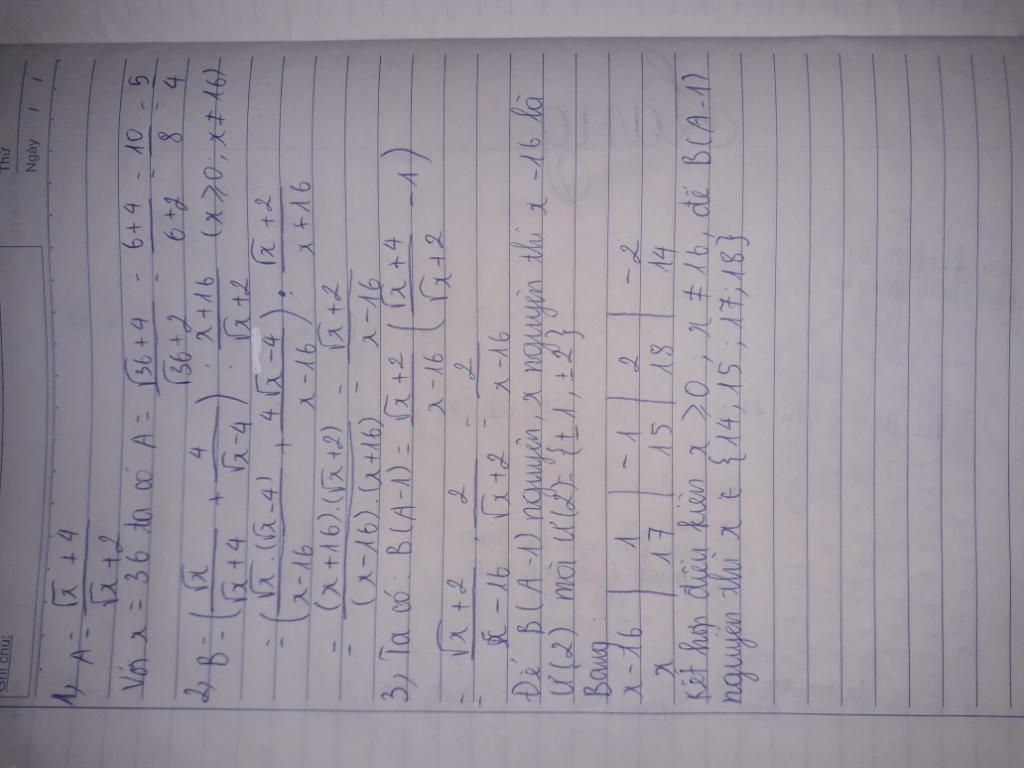 Thứ
Ngày
Ghi chú:
1, A = √x + 4 / √x + 2
Với x = 36 ta có A = √36 + 4 / √36 + 2 = 6 + 4 / 6 + 2 = 10 / 8 = 5 / 4
2, B = ( √x / √x + 4 + 4 / √x - 4 ) : x + 16 / √x + 2 (x ≥ 0 ; x ≠ 16)
= ( √x . (√x - 4) / x - 16 + 4 √x - 4) / x - 16 ) . √x + 2 / x + 16
= (x + 16) . (√x + 2) / (x - 16) . (x + 16) = √x + 2 / x - 16
3, Ta có: B(A - 1) = √x + 2 / x - 16 ( √x + 4 / √x + 2 - 1 )
= √x + 2 / x - 16 . 2 / √x + 2 = 2 / x - 16
Để B(A - 1) nguyên, x nguyên thì x - 16 là
Ư(2) mà Ư(2) = {± 1 ; ± 2}
Bảng
x - 16 | 1 | - 1 | 2 | - 2
x | 17 | 15 | 18 | 14
Kết hợp điều kiện x ≥ 0 ; x ≠ 16, để B(A - 1)
nguyên thì x ∈ {14 ; 15 ; 17 ; 18}